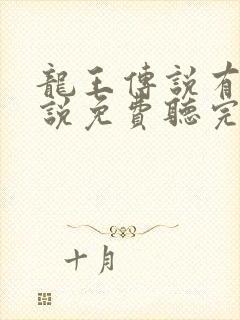 龍王傳説有
説免費聽完
十月